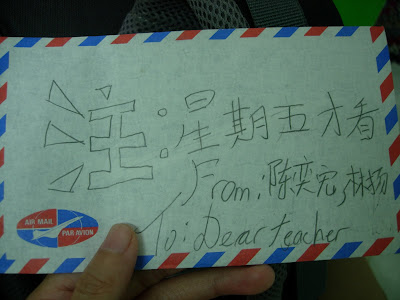 注:星期五才看
From:陳奕宏,林揚
To:Dear teacher
AIR MAIL
PAR AVION